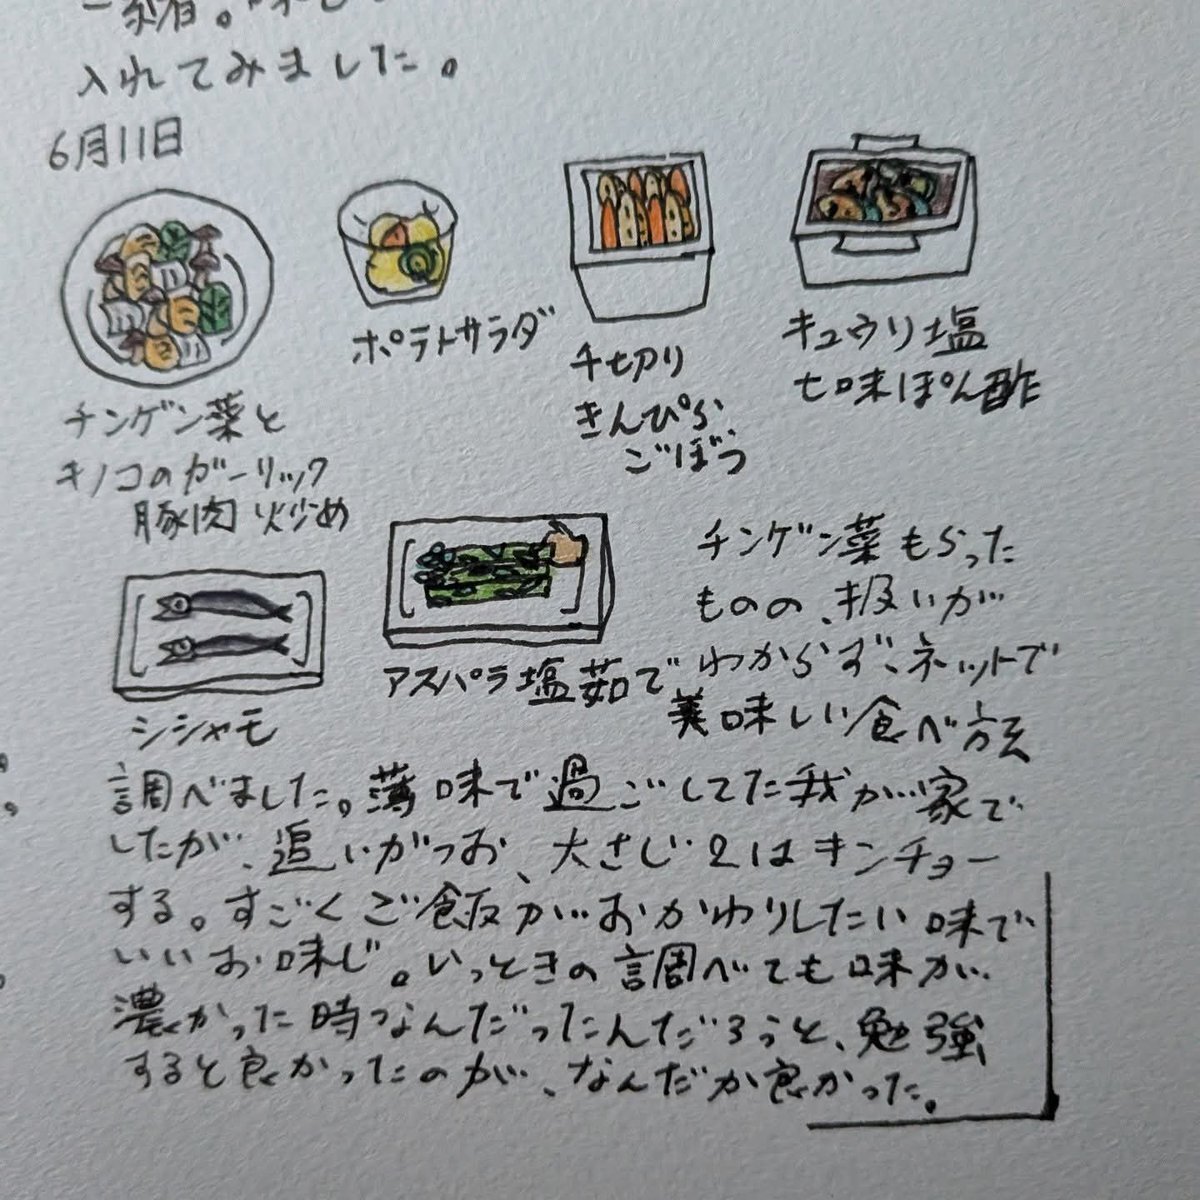 一緒。味し
入れてみました。
6月11日
チンゲン菜と
キノコのガーリック
豚肉炒め
ポテトサラダ
千切り
きんぴら
ごぼう
キュウリ塩
七味ぽん酢
シシャモ
アスパラ塩茹で
チンゲン菜もらった
ものの、扱いが
わからず、ネットで
美味しい食べ方
調べました。薄味で過ごしてた我が家で
したが、追いがつお、大さじ2はキンチョー
する。すごくご飯がおかわりしたい味で
いいお味じ。いっときの調べても味が
濃かった時なんだったんだろうと、勉強
すると良かったのが、なんだか良かった。